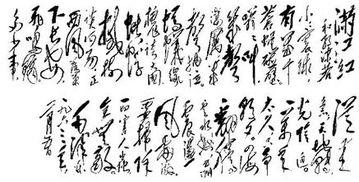 满江红
小小寰球
有几个苍
蝇碰壁
嗡嗡叫
几声凄厉
几声抽泣
蚂蚁缘槐
夸大国
蚍蜉
撼树
谈何易正
西风落叶
下长安
飞鸣镝
多少事
从来
急天地转
光阴迫
一万年
太久只争
朝夕四海
翻腾
云水怒五洲
震荡
风雷激
要扫除
一切害人虫
全无敌
毛泽东
一九六三年
二月五日